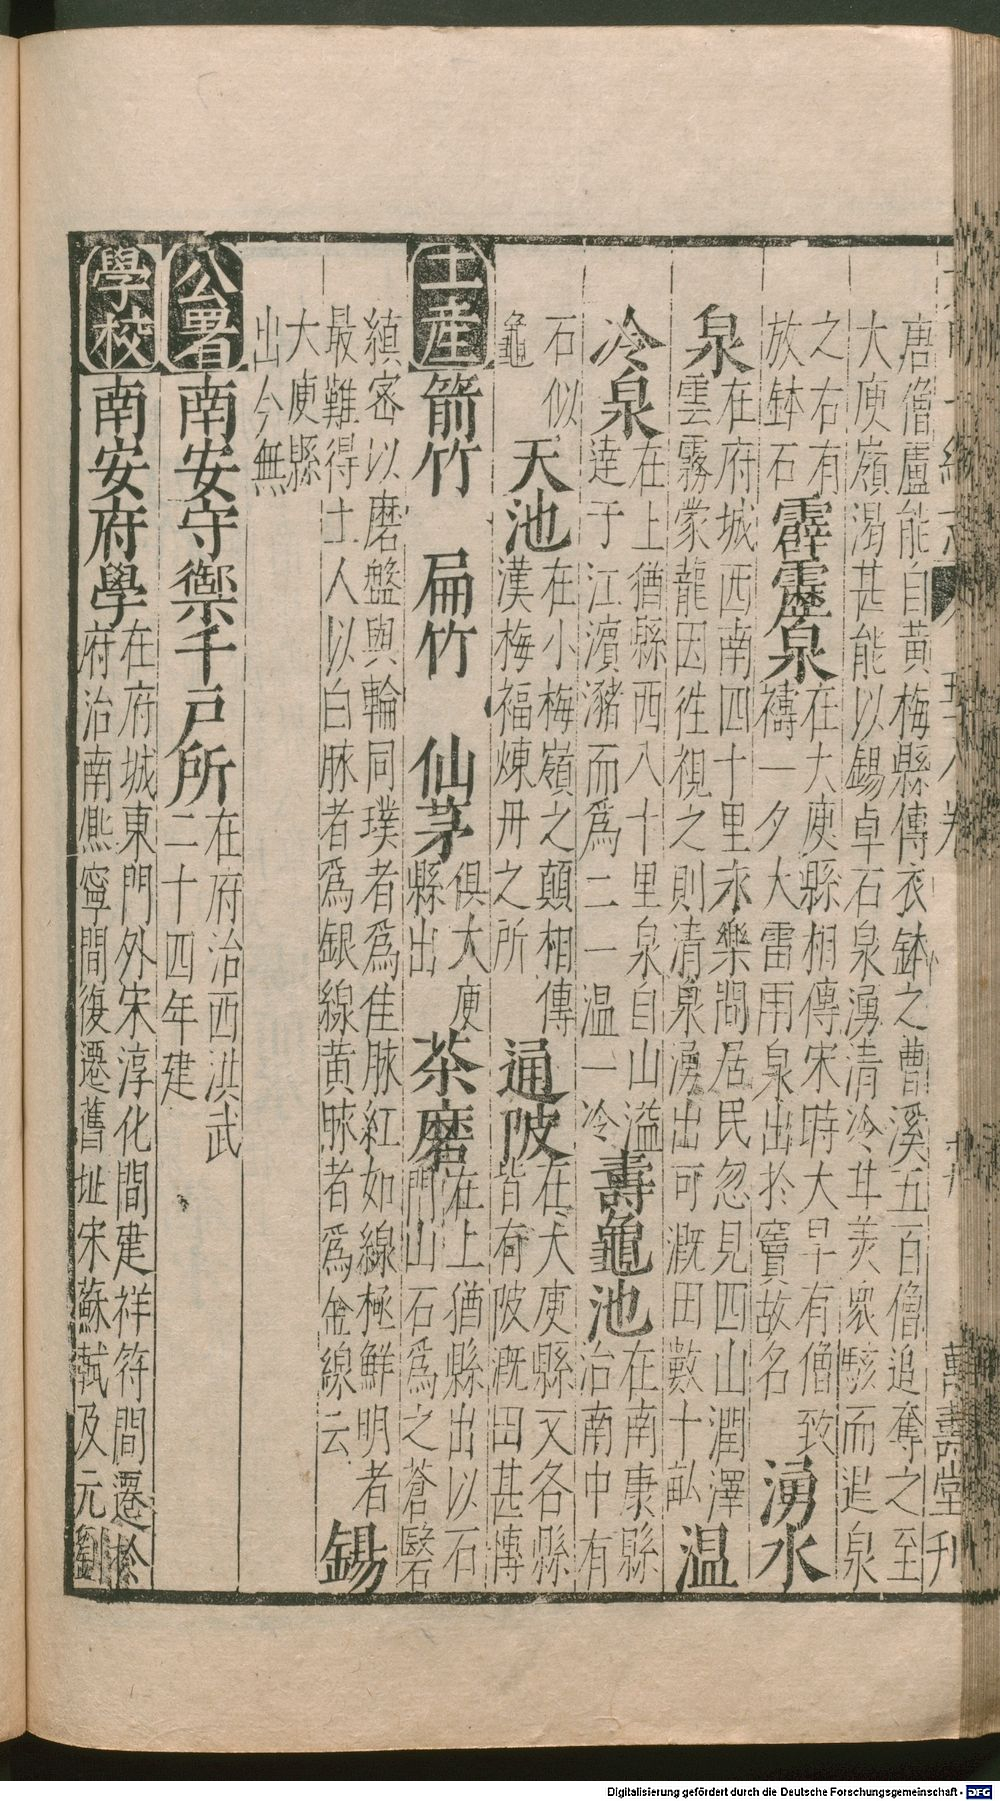 大明一統志 五十八卷 萬壽堂刊
唐僧盧能自黃梅縣傳衣鉢之曹溪五百僧追奪之至
大庾嶺渴甚能以錫卓石泉湧清冷甘美衆駭而退泉
之右有
放鉢石
霹靂泉
在大庾縣相傳宋時大旱有僧致
禱一夕大雷雨泉出於竇故名
湧水
泉
在府城西南四十里永樂間居民忽見四山潤澤
雲霧蒙籠因徃視之則清泉湧出可溉田數十畝
温
冷泉
在上猶縣西八十里泉自山溢
達于江濵瀦而爲二一温一冷
壽龜池
在南康縣
治南中有
石似
龜
天池
在小梅嶺之顛相傳
漢梅福煉丹之所
通陂
在大庾縣又各縣
皆有陂溉田甚博
土産
箭竹
扁竹
仙茅
俱大庾
縣出
茶磨
在上猶縣出以石
門山石爲之蒼黳
縝密以磨盤與輪同璞者爲佳脉紅如線極鮮明者
最難得土人以白脉者爲銀線黃脉者爲金線云
錫
大庾縣
出今無
公署
南安守禦千戶所
在府治西洪武
二十四年建
學校
南安府學
在府城東門外宋淳化間建祥符間遷於
府治南熈寧間復遷舊址宋蘇軾及元劉
Digitalisierung gefördert durch die Deutsche Forschungsgemeinschaft - DFG